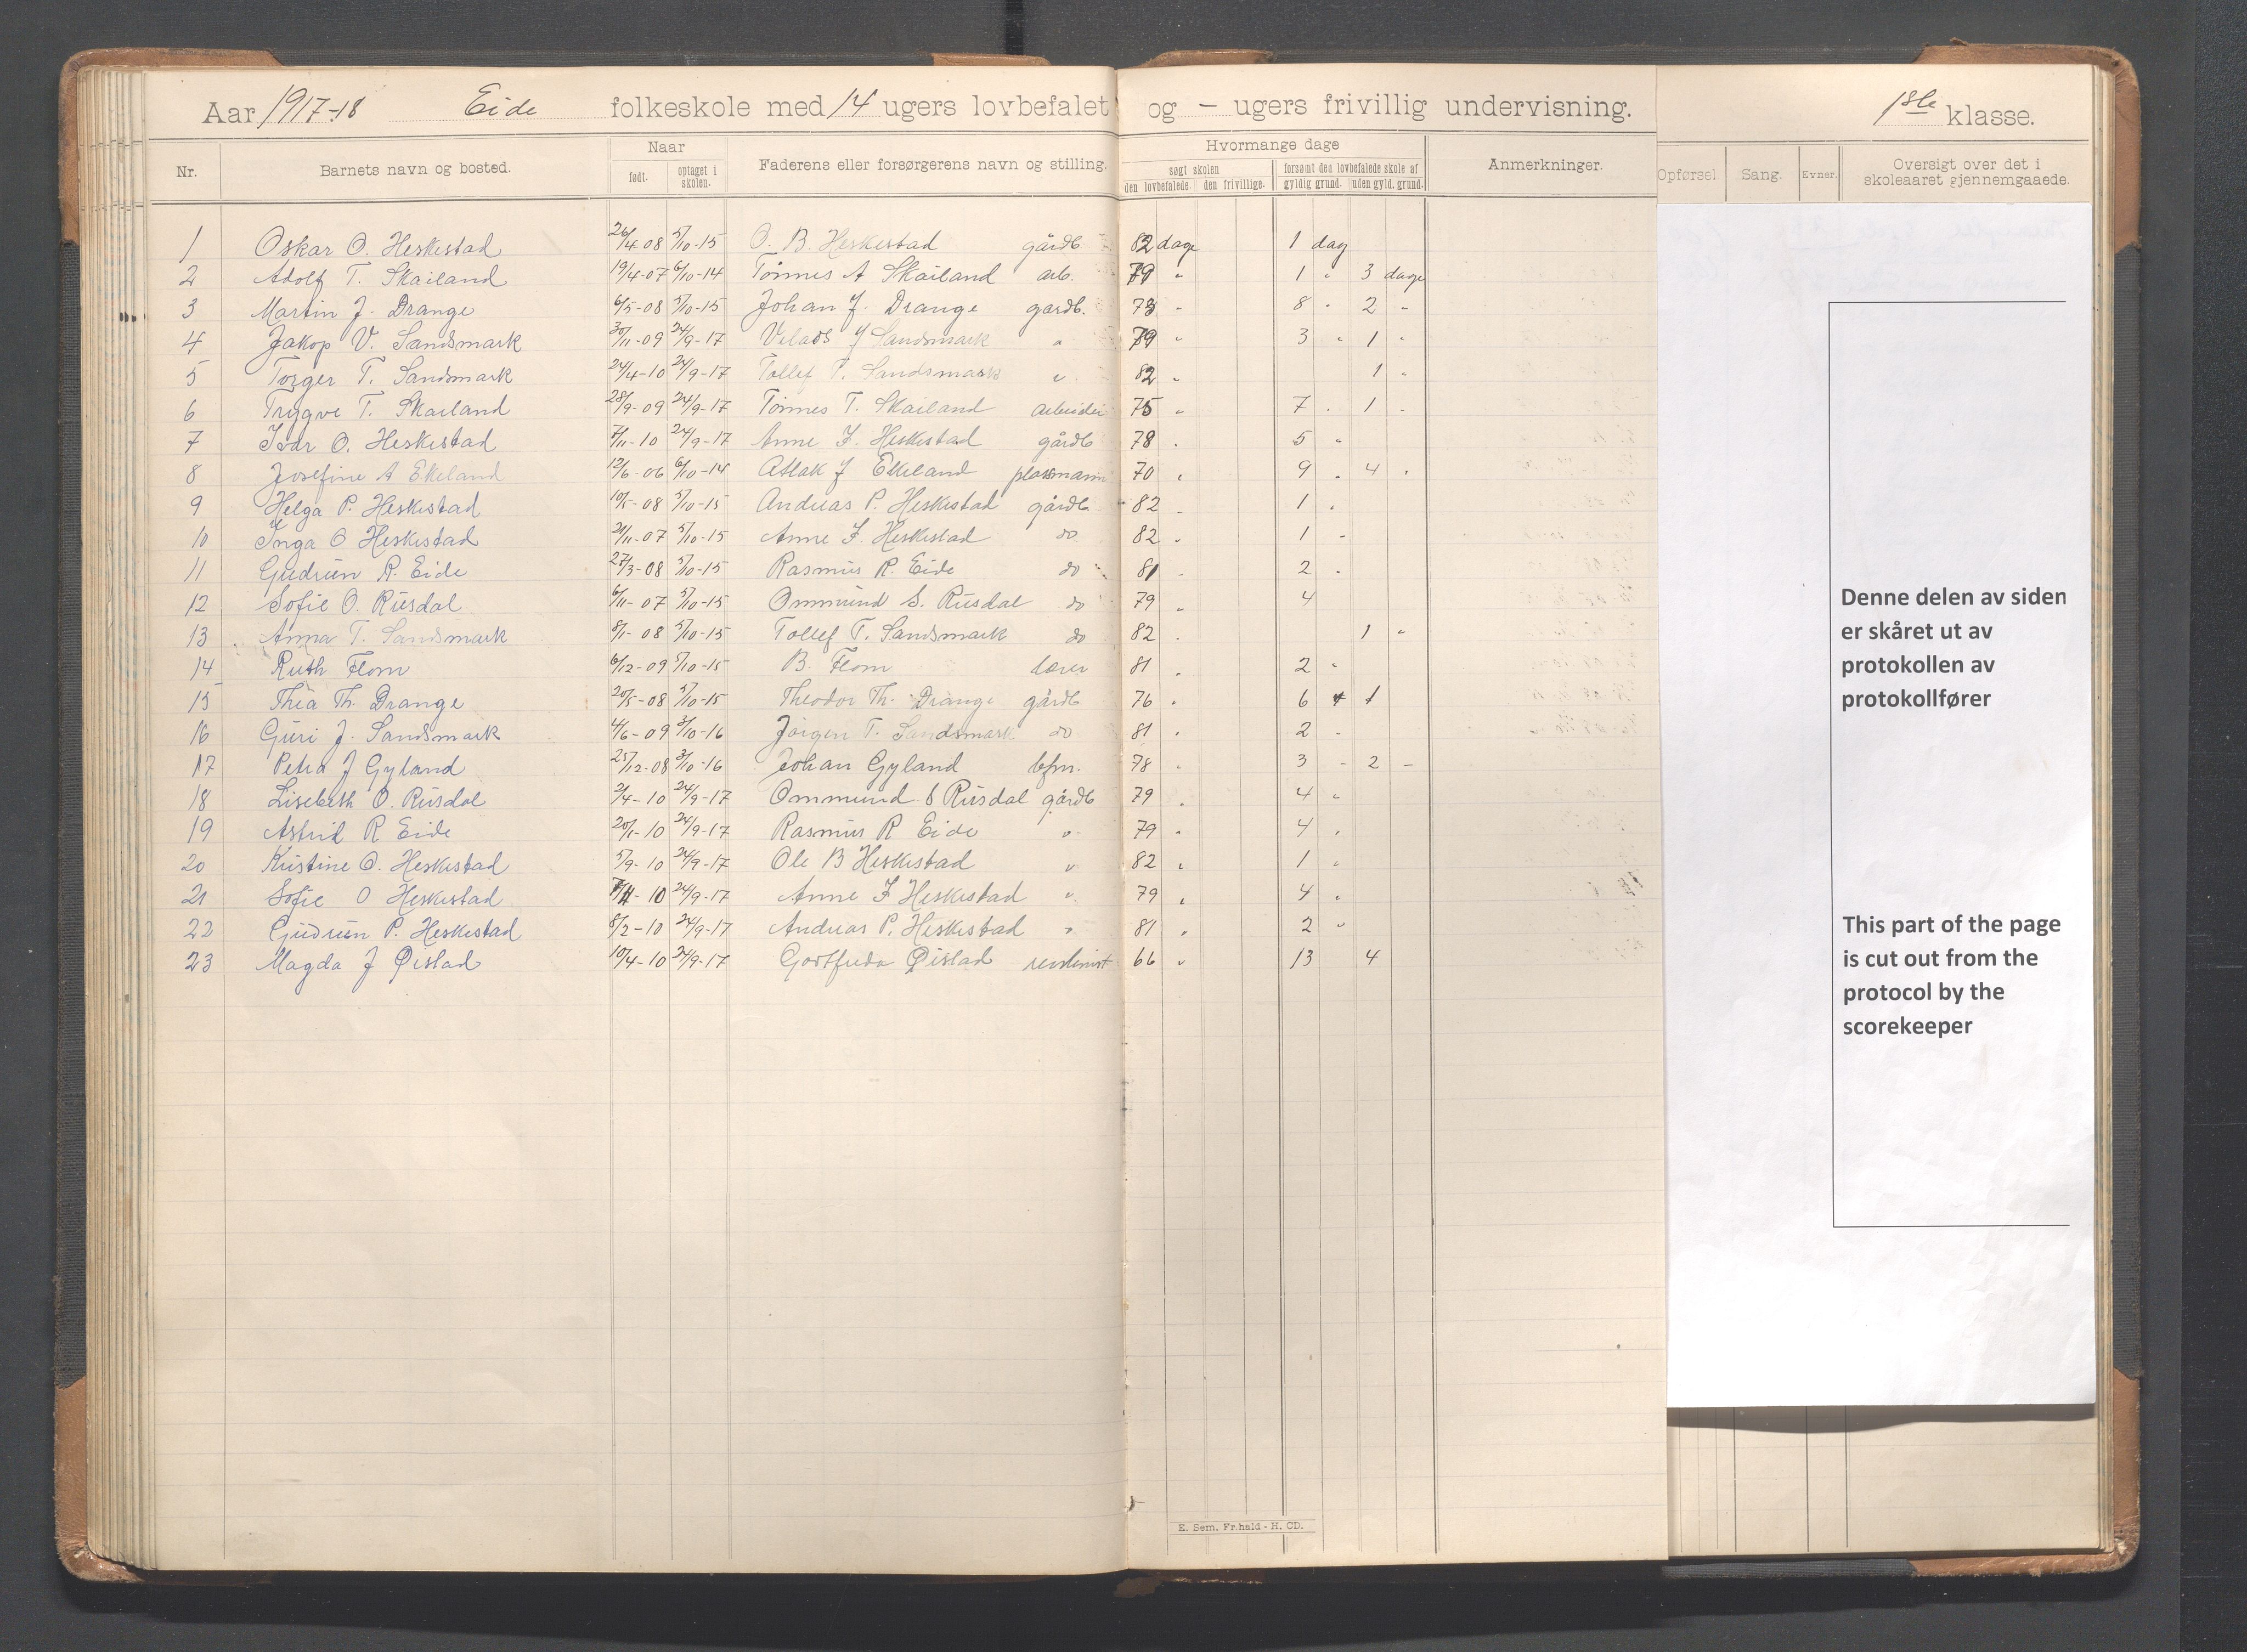 Aar 1917-18 Eide folkeskole med 14 ugers lovbefalet og - ugers frivillig undervisning. 1ste klasse.
Nr. Barnets navn og bosted. Naar født. optaget i skolen. Faderens eller forsørgerens navn og stilling. Hvormange dage søgt skolen den lovbefalede. den frivillige. forsømt den lovbefalede skole af gyldig grund. uden gyld. grund. Anmerkninger. Opførsel Sang. Evner. Oversigt over det i skoleaaret gjennemgaaede.
1 Oskar O. Heskestad 26/4-08 5/10-15 O. B. Heskestad gårdb 82 dage 1 dag
2 Adolf T. Skailand 19/4-07 6/10-14 Tönnes A Skailand arb. 79 " 1 " 3 dage
3 Martin J. Drange 6/5-08 5/10-15 Johan J. Drange gardb. 73 " 8 " 2 "
4 Jakop V. Sandsmark 30/11-09 24/9-17 Y Sandsmark " 79 " 3 " 1 "
5 Torger T. Sandsmark 24/4-10 24/9-17 Tollef T. Sandsmark " 82 " 1 "
6 Trygve T. Skailand 28/9-09 24/9-17 Tönnes T. Skailand arbeider 75 " 7 " 1 "
7 Ivar O. Heskestad 7/11-10 24/9-17 Anne F. Heskestad gårdb 78 " 5 "
8 Josefine A Ekeland 12/6-06 6/10-14 Atlak J Ekeland plassmann 70 " 9 " 4 "
9 Helga P. Heskestad 10/5-08 5/10-15 Andreas P. Heskestad gårdb 82 " 1 "
10 Inga O Heskestad 21/11-07 5/10-15 Anne F. Heskestad do 82 " 1 "
11 Gudrun R. Eide 27/3-08 5/10-15 Rasmus R. Eide do 81 " 2 "
12 Sofie O. Rusdal 6/11-07 5/10-15 Ommund S. Rusdal do 79 " 4
13 Anna T. Sandsmark 8/1-08 5/10-15 Tollef T. Sandsmark do 82 " 1 "
14 Ruth Flom 6/12-09 5/10-15 B. Flom lærer 81 " 2 "
15 Thea Th. Drange 20/5-08 5/10-15 Theodor Th. Drange gårdb 76 " 6 " 1
16 Guri J. Sandsmark 4/6-09 3/10-16 Jörgen T. Sandsmark do 81 " 2 "
17 Petra J Gyland 25/12-08 3/10-16 Johan Gyland bfm. 78 " 3 " 2 "
18 Lisebeth O. Rusdal 2/4-10 24/9-17 Ommund S Rusdal gårdb 79 " 4 "
19 Astrid R Eide 20/1-10 24/9-17 Rasmus R Eide " 79 " 4 "
20 Kristine O. Heskestad 5/9-10 24/9-17 Ole B Heskestad " 82 " 1 "
21 Sofie O Heskestad 7/11-10 24/9-17 Anne F Heskestad " 79 " 4 "
22 Gudrun P. Heskestad 8/2-10 24/9-17 Andreas P. Heskestad " 81 " 2 "
23 Magda J Øistad 10/4-10 24/9-17 Øistad 66 " 13 4
Denne delen av siden
er skåret ut av
protokollen av
protokollfører
This part of the page
is cut out from the
protocol by the
scorekeeper
E. Sem. Fr.hald - H. CD.